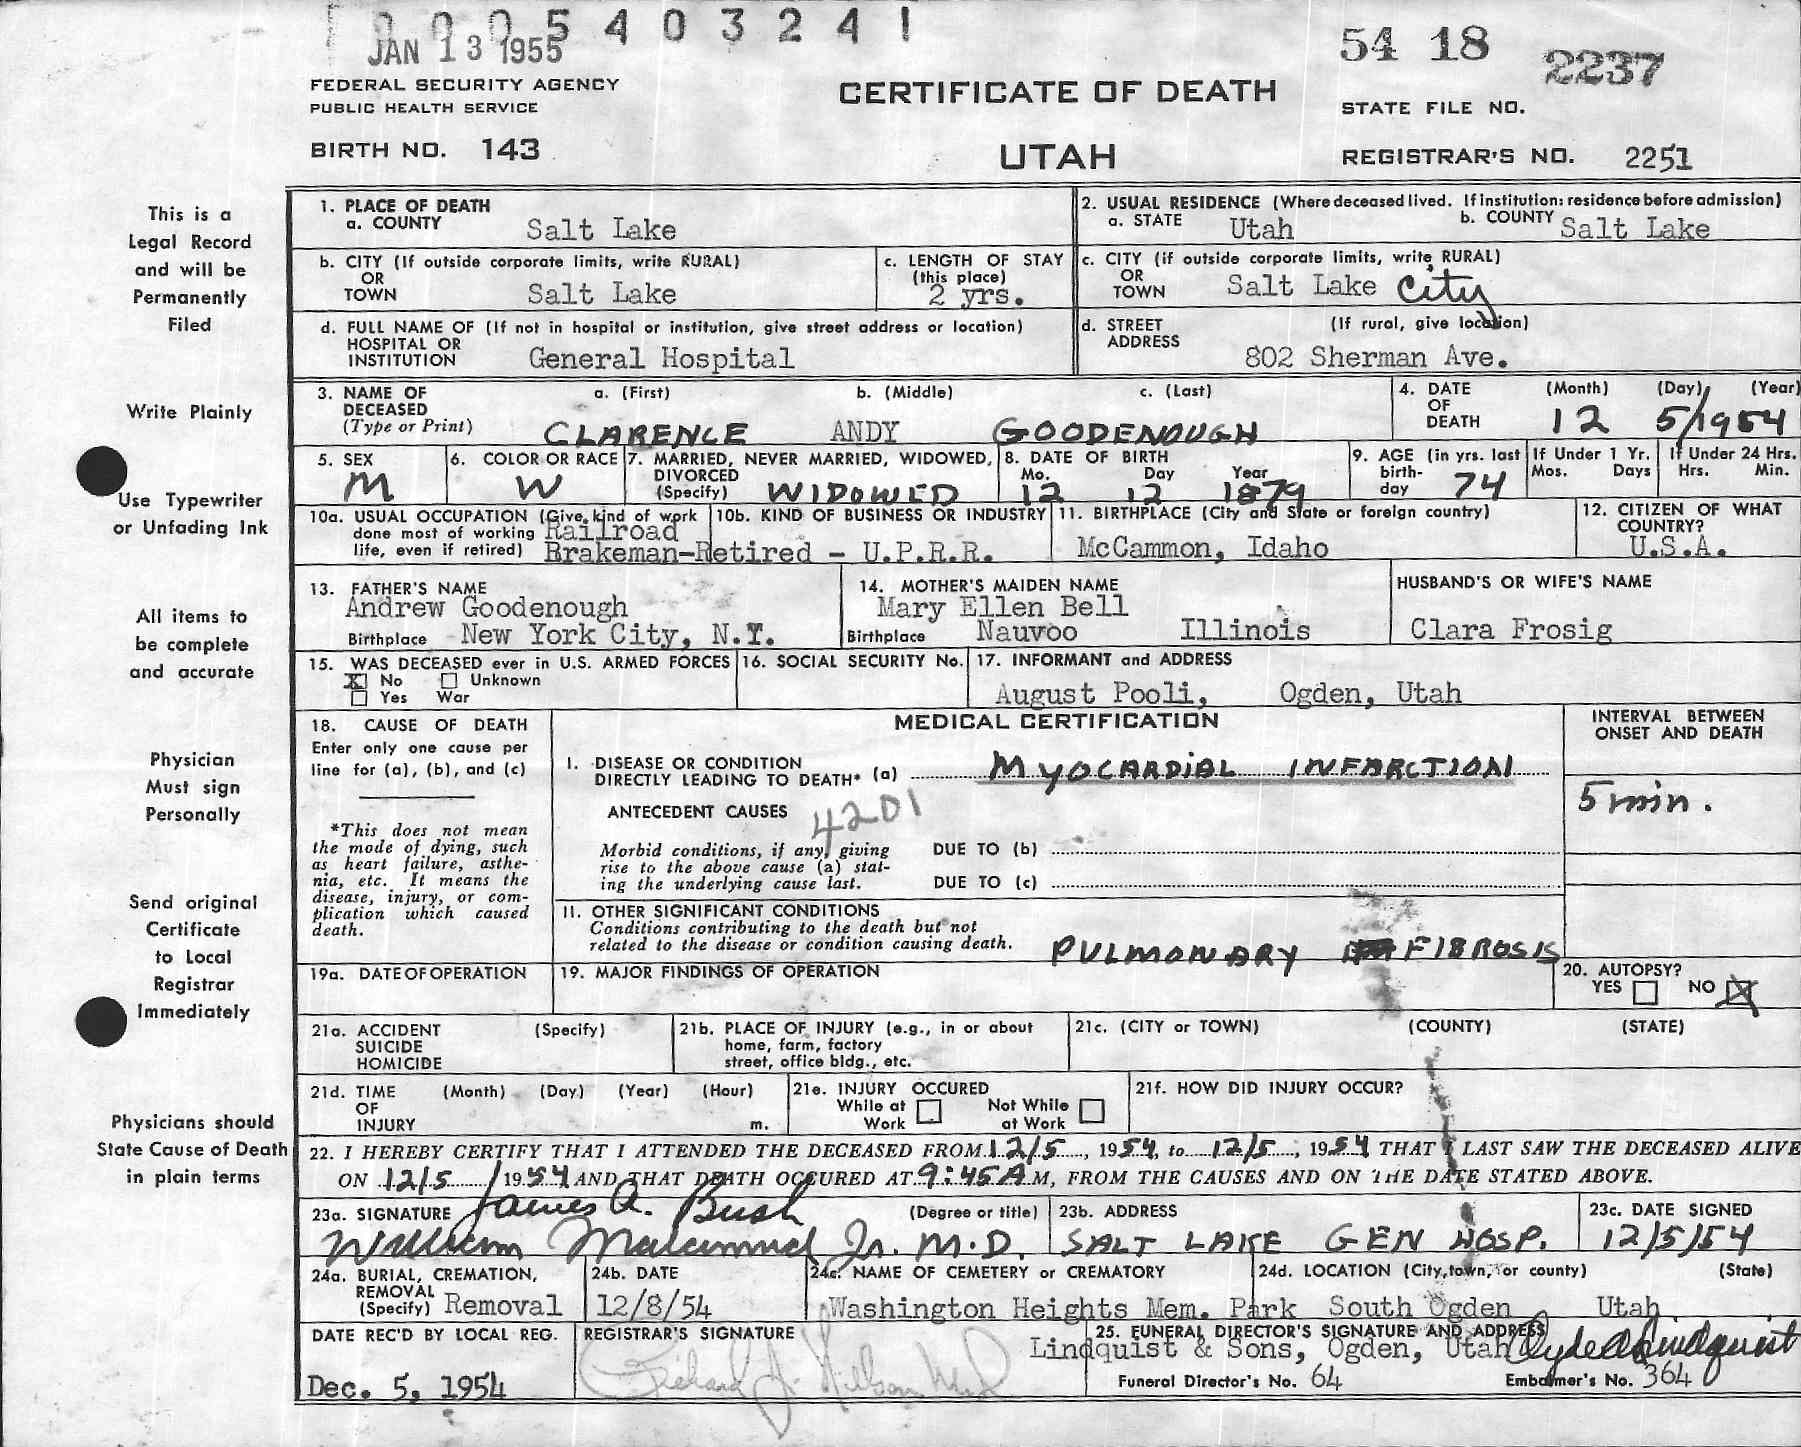 0005403241
JAN 13 1955
54 18 2237
FEDERAL SECURITY AGENCY
PUBLIC HEALTH SERVICE
CERTIFICATE OF DEATH
STATE FILE NO.
BIRTH NO. 143
UTAH
REGISTRAR'S NO. 2251
This is a
Legal Record
and will be
Permanently
Filed
Write Plainly
Use Typewriter
or Unfading Ink
All items to
be complete
and accurate
Physician
Must sign
Personally
Send original
Certificate
to Local
Registrar
Immediately
Physicians should
State Cause of Death
in plain terms
1. PLACE OF DEATH
a. COUNTY Salt Lake
2. USUAL RESIDENCE (Where deceased lived. If institution: residence before admission)
a. STATE Utah b. COUNTY Salt Lake
b. CITY (If outside corporate limits, write RURAL)
OR
TOWN Salt Lake
c. LENGTH OF STAY
(this place)
2 yrs.
c. CITY (if outside corporate limits, write RURAL)
OR
TOWN Salt Lake City
d. FULL NAME OF (If not in hospital or institution, give street address or location)
HOSPITAL OR
INSTITUTION General Hospital
d. STREET (If rural, give location)
ADDRESS
802 Sherman Ave.
3. NAME OF a. (First) b. (Middle) c. (Last)
DECEASED
(Type or Print) CLARENCE ANDY GOODENOUGH
4. DATE (Month) (Day) (Year)
OF
DEATH 12 5/1954
5. SEX
M
6. COLOR OR RACE
W
7. MARRIED, NEVER MARRIED, WIDOWED,
DIVORCED
(Specify) WIDOWED
8. DATE OF BIRTH
Mo. Day Year
12 12 1879
9. AGE (in yrs. last
birth-
day 74
If Under 1 Yr.
Mos. Days
If Under 24 Hrs.
Hrs. Min.
10a. USUAL OCCUPATION (Give kind of work
done most of working Railroad
life, even if retired) Brakeman-Retired - U.P.R.R.
10b. KIND OF BUSINESS OR INDUSTRY
11. BIRTHPLACE (City and State or foreign country)
McCammon, Idaho
12. CITIZEN OF WHAT
COUNTRY?
U.S.A.
13. FATHER'S NAME
Andrew Goodenough
Birthplace New York City, N.Y.
14. MOTHER'S MAIDEN NAME
Mary Ellen Bell
Birthplace Nauvoo Illinois
HUSBAND'S OR WIFE'S NAME
Clara Frosig
15. WAS DECEASED ever in U.S. ARMED FORCES
X No Unknown
Yes War
16. SOCIAL SECURITY No.
17. INFORMANT and ADDRESS
August Pooli, Ogden, Utah
18. CAUSE OF DEATH
Enter only one cause per
line for (a), (b), and (c)
*This does not mean
the mode of dying, such
as heart failure, asthe-
nia, etc. It means the
disease, injury, or com-
plication which caused
death.
MEDICAL CERTIFICATION
INTERVAL BETWEEN
ONSET AND DEATH
I. DISEASE OR CONDITION
DIRECTLY LEADING TO DEATH* (a) MYOCARDIAL INFARCTION
5 min.
ANTECEDENT CAUSES 4201
Morbid conditions, if any, giving
rise to the above cause (a) stat-
ing the underlying cause last.
DUE TO (b)
DUE TO (c)
II. OTHER SIGNIFICANT CONDITIONS
Conditions contributing to the death but not
related to the disease or condition causing death.
PULMONARY FIBROSIS
19a. DATE OF OPERATION
19. MAJOR FINDINGS OF OPERATION
20. AUTOPSY?
YES NO X
21a. ACCIDENT (Specify)
SUICIDE
HOMICIDE
21b. PLACE OF INJURY (e.g., in or about
home, farm, factory
street, office bldg., etc.
21c. (CITY or TOWN) (COUNTY) (STATE)
21d. TIME (Month) (Day) (Year) (Hour)
OF
INJURY m.
21e. INJURY OCCURED
While at Work
Not While at Work
21f. HOW DID INJURY OCCUR?
22. I HEREBY CERTIFY THAT I ATTENDED THE DECEASED FROM 12/5, 1954, to 12/5, 1954 THAT I LAST SAW THE DECEASED ALIVE
ON 12/5 1954 AND THAT DEATH OCCURED AT 9:45 A M, FROM THE CAUSES AND ON THE DATE STATED ABOVE.
23a. SIGNATURE James A. Bush (Degree or title)
William Jr. M.D.
23b. ADDRESS
SALT LAKE GEN HOSP.
23c. DATE SIGNED
12/5/54
24a. BURIAL, CREMATION,
REMOVAL
(Specify) Removal
24b. DATE
12/8/54
24c. NAME OF CEMETERY or CREMATORY
Washington Heights Mem. Park
24d. LOCATION (City, town, or county) (State)
South Ogden Utah
DATE REC'D BY LOCAL REG.
Dec. 5, 1954
REGISTRAR'S SIGNATURE
25. FUNERAL DIRECTOR'S SIGNATURE AND ADDRESS
Lindquist & Sons, Ogden, Utah Clyde A Lindquist
Funeral Director's No. 64 Embalmer's No. 364